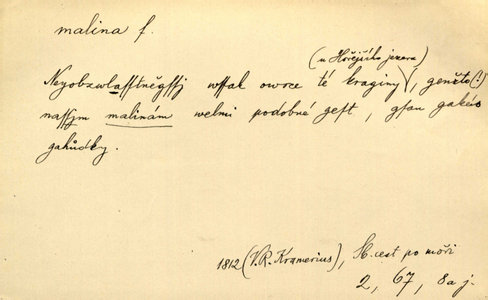 malina f.
(u Hořejšího jezera)
Neyobzwlasstněgssj wssak owoce té kraginy, genžto (!)
nassjm malinám welmi podobné gest, gsau gakés
gahůdky.
1812 (V.R. Kramerius), Sb. cest po moři
2, 67, 8a j.